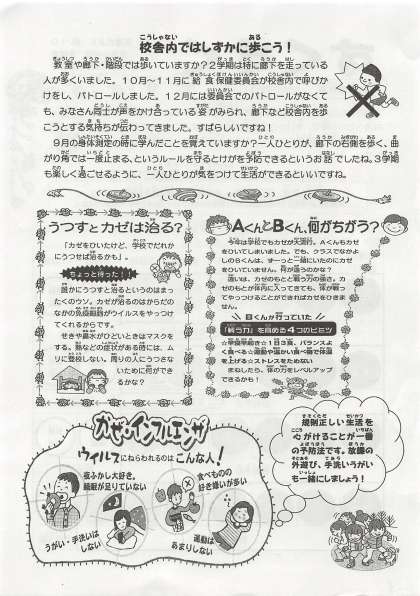 校舎内ではしずかに歩こう！
教室や廊下・階段では歩いていますか？2学期は特に廊下を走っている
人が多くいました。10月～11月に給食保健委員会が校舎内で呼びか
けをし、パトロールしました。12月には委員会でのパトロールがなくて
も、みなさん同士が声をかけ合っている姿がみられ、廊下など校舎内を歩
こうとする気持ちが伝わってきました。すばらしいですね！
9月の身体測定の時に学んだことを覚えていますか？一人ひとりが、廊下の右側を歩く、曲
がり角では一度止まる、というルールを守るとけがを予防できるというお話でしたね。3学期
も楽しく過ごせるように、一人ひとりが気をつけて生活ができるといいですね。
うつすとカゼは治る？
「カゼをひいたけど、学校でだれか
にうつせば治るかも」。
ちょっと待った！！
誰かにうつすと治るというのはまっ
たくのウソ。カゼが治るのはからだの
なかの免疫細胞がウイルスをやっつけ
てくれるからです。
せきや鼻水がひどいときはマスクを
する。熱などの症状がある時には、ム
リに登校しない。周りの人にうつさな
いために何ができ
るかな？
AくんとBくん、何がちがう？
今年は学校でもカゼが大流行。Aくんもカゼ
をひいてしまいました。でも、クラスでなかよ
しのBくんは、ずっと一緒にいたのにカゼ
をひいていません。何が違うのかな？
違いは、カゼのもとと戦う力の強さ。カ
ゼのもとが体内に入ってきても、体が戦っ
てやっつけることができればカゼをひきま
せん。
Bくんが行っていた
「戦う力」を高める4つのヒミツ
☆早寝早起き☆1日3食、バランスよ
く食べる☆運動や温かい食べ物で体温
を上げる☆ストレスをためない
まねしたら、体の力をレベルアップ
できるかも！
かぜ・インフルエンザ
ウイルスにねらわれるのはこんな人！
夜ふかし大好き。
睡眠が足りていない
食べものの
好き嫌いが多い
うがい・手洗いは
しない
運動は
あまりしない
規則正しい生活を
心がけることが一番
の予防法です。放課の
外遊び、手洗いうがい
も一緒にしましょう！